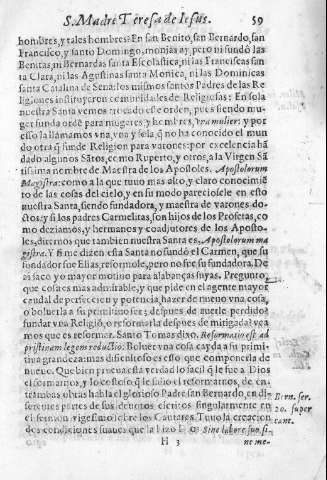 S. Madre Teresa de Iesus. 59
hombres, y tales hombres? En san Benito, san Bernardo, san
Francisco, y santo Domingo, monjas ay, pero ni fundò las
Benitas, ni Bernardas santa Escolastica, ni las Franciscas san
ta Clara, ni las Agustinas santa Monica, ni las Dominicas
santa Catalina de Sena: los mismos santos Padres de las Re
ligiones instituyeron comunidades de Religiosas: En sola
nuestra Santa vemos trocado este orden, pues siendo mu-
ger funda ordē para mugeres, y hombres, Vna mulier: y por
esso la llamamos vna, y vna, y sola, q̃ no ha conocido el mun
do otra q̃ funde Religion para varones: por excelencia hã
dado algunos Sãtos, como Ruperto, y otros, a la Virgen Sã
tissima nombre de Maestra de los Apostoles. Apostolorum
Magistra: como a la que tuuo mas alto, y claro conocimiē
to de las cosas del cielo, y en su modo pareciosele en esto
nuestra Santa, siendo fundadora, y maestra de varones do-
ctos: y si los padres Carmelitas, son hijos de los Profetas, co
mo deziamos, y hermanos y coadjutores de los Aposto-
les, diremos que tambien nuestra Santa es, Apostolorum ma
gistra. Y si me dizen esta Santa no fundò el Carmen, que su
fundador fue Elias, reformole, pero no fue su fundadora. De
aì saco yo mayor motiuo para alabanças suyas. Pregunto,
que cosa es mas admirable, y que pide en el agente mayor
caudal de perfeccion y potencia, hazer de nueuo vna cosa,
o boluerla a su primitiuo ser; despues de auerle perdido?
fundar vna Religiõ, o reformarla despues de mitigada? vea
mos que es reformar. Santo Tomas dixo. Reformatio est ad
pristinam legem reductio. Boluer vna cosa cayda a su primi-
tiua grandeza: mas dificultoso es esso que componerla de
nueuo. Que bien prueua esta verdad lo facil q̃ le fue a Dios
el formarnos, y lo costoso q̃ le saliò el reformarnos, de en-
trambas obras habla el glorioso Padre san Bernardo, en di-
ferentes partes de sus dulces escritos singularmente en
el sermon vigesimo sobre los Cantares. Tuuo la creacion
dos condiciones suaues que la hizo Dios Sine labore, sin fi-
Bern. ser.
20. super
cant.
H 3 ne me-